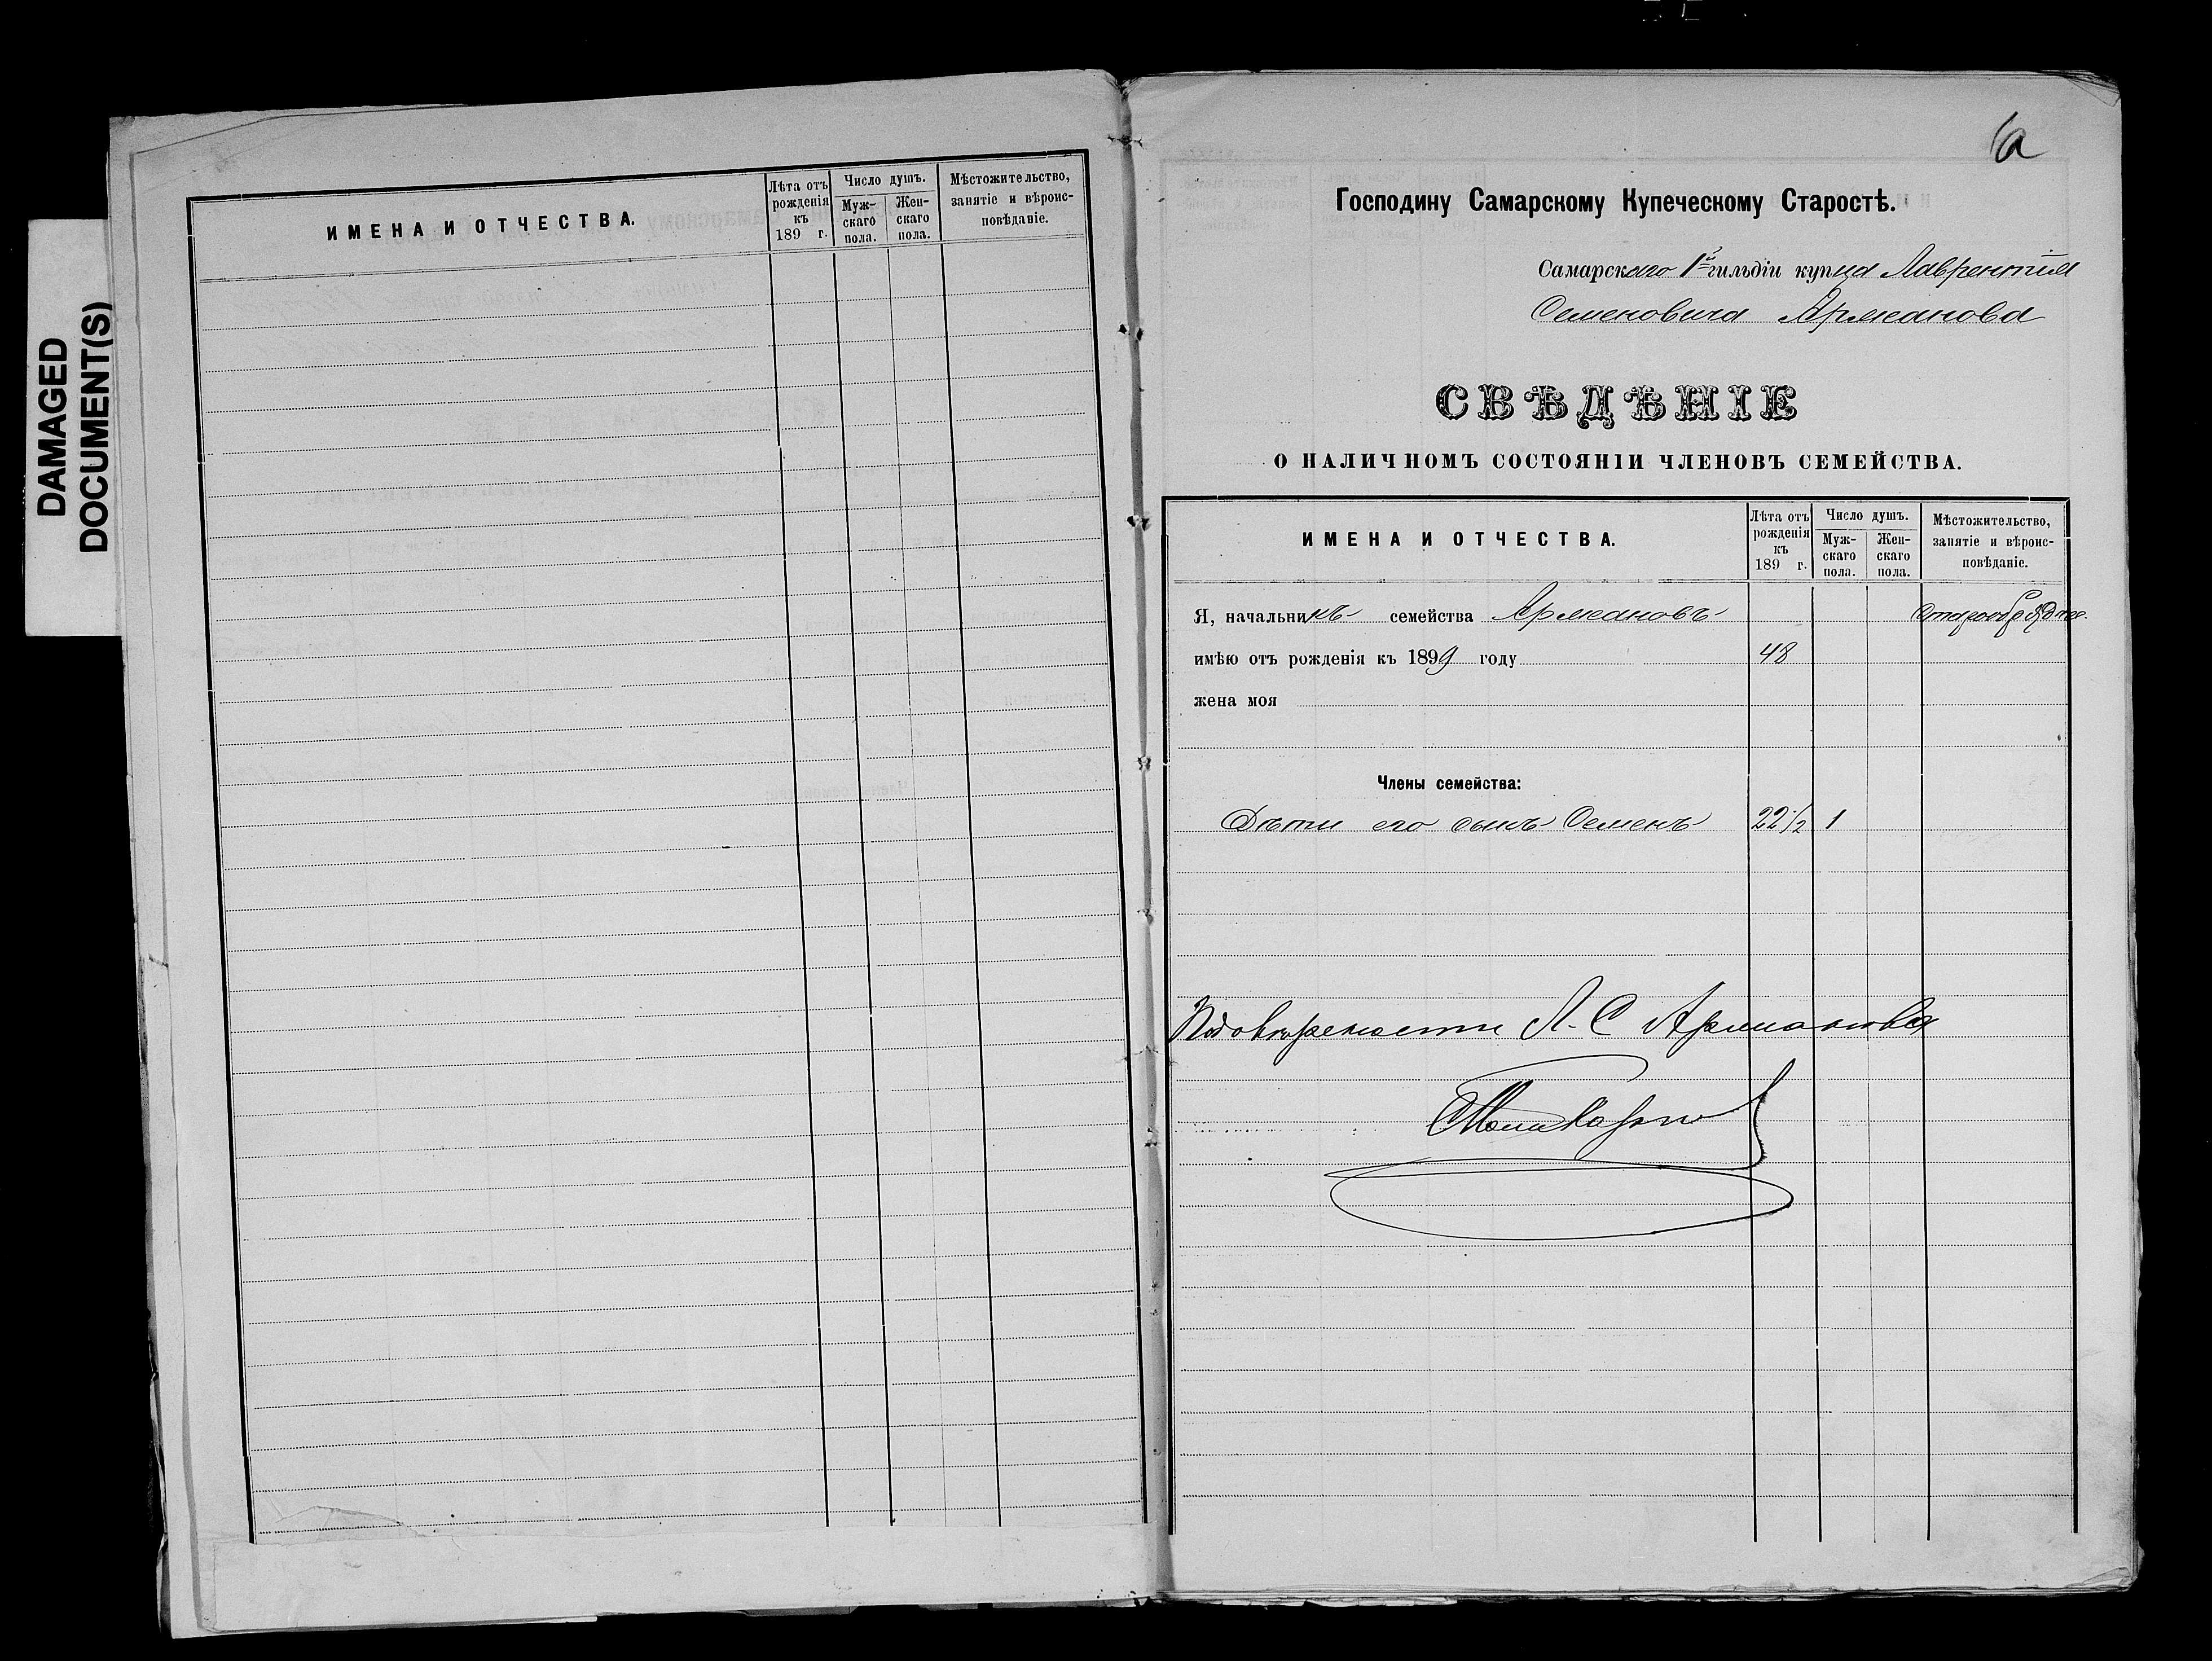 DAMAGED
DOCUMENT(S)
ИМЕНА И ОТЧЕСТВА.
Лѣта отъ
рожденія
къ
189 г.
Число душъ.
Муж-
скаго
пола.
Жен-
скаго
пола.
Мѣстожительство,
занятіе и вѣроис-
повѣданіе.
Господину Самарскому Купеческому Старостѣ.
Самарскаго 1й гильдіи купца Лаврентія
Семеновича Аржанова
СВѢДѢНІЕ
О НАЛИЧНОМЪ СОСТОЯНІИ ЧЛЕНОВЪ СЕМЕЙСТВА.
ИМЕНА И ОТЧЕСТВА.
Лѣта отъ
рожденія
къ
189 г.
Число душъ.
Муж-
скаго
пола.
Жен-
скаго
пола.
Мѣстожительство,
занятіе и вѣроис-
повѣданіе.
Я, начальникъ семейства Аржановъ
имѣю отъ рожденія къ 1899 году 48
жена моя
Члены семейства:
Дѣти его сынъ Семенъ 22 1/2 1
По довѣренности Л. С Аржанова